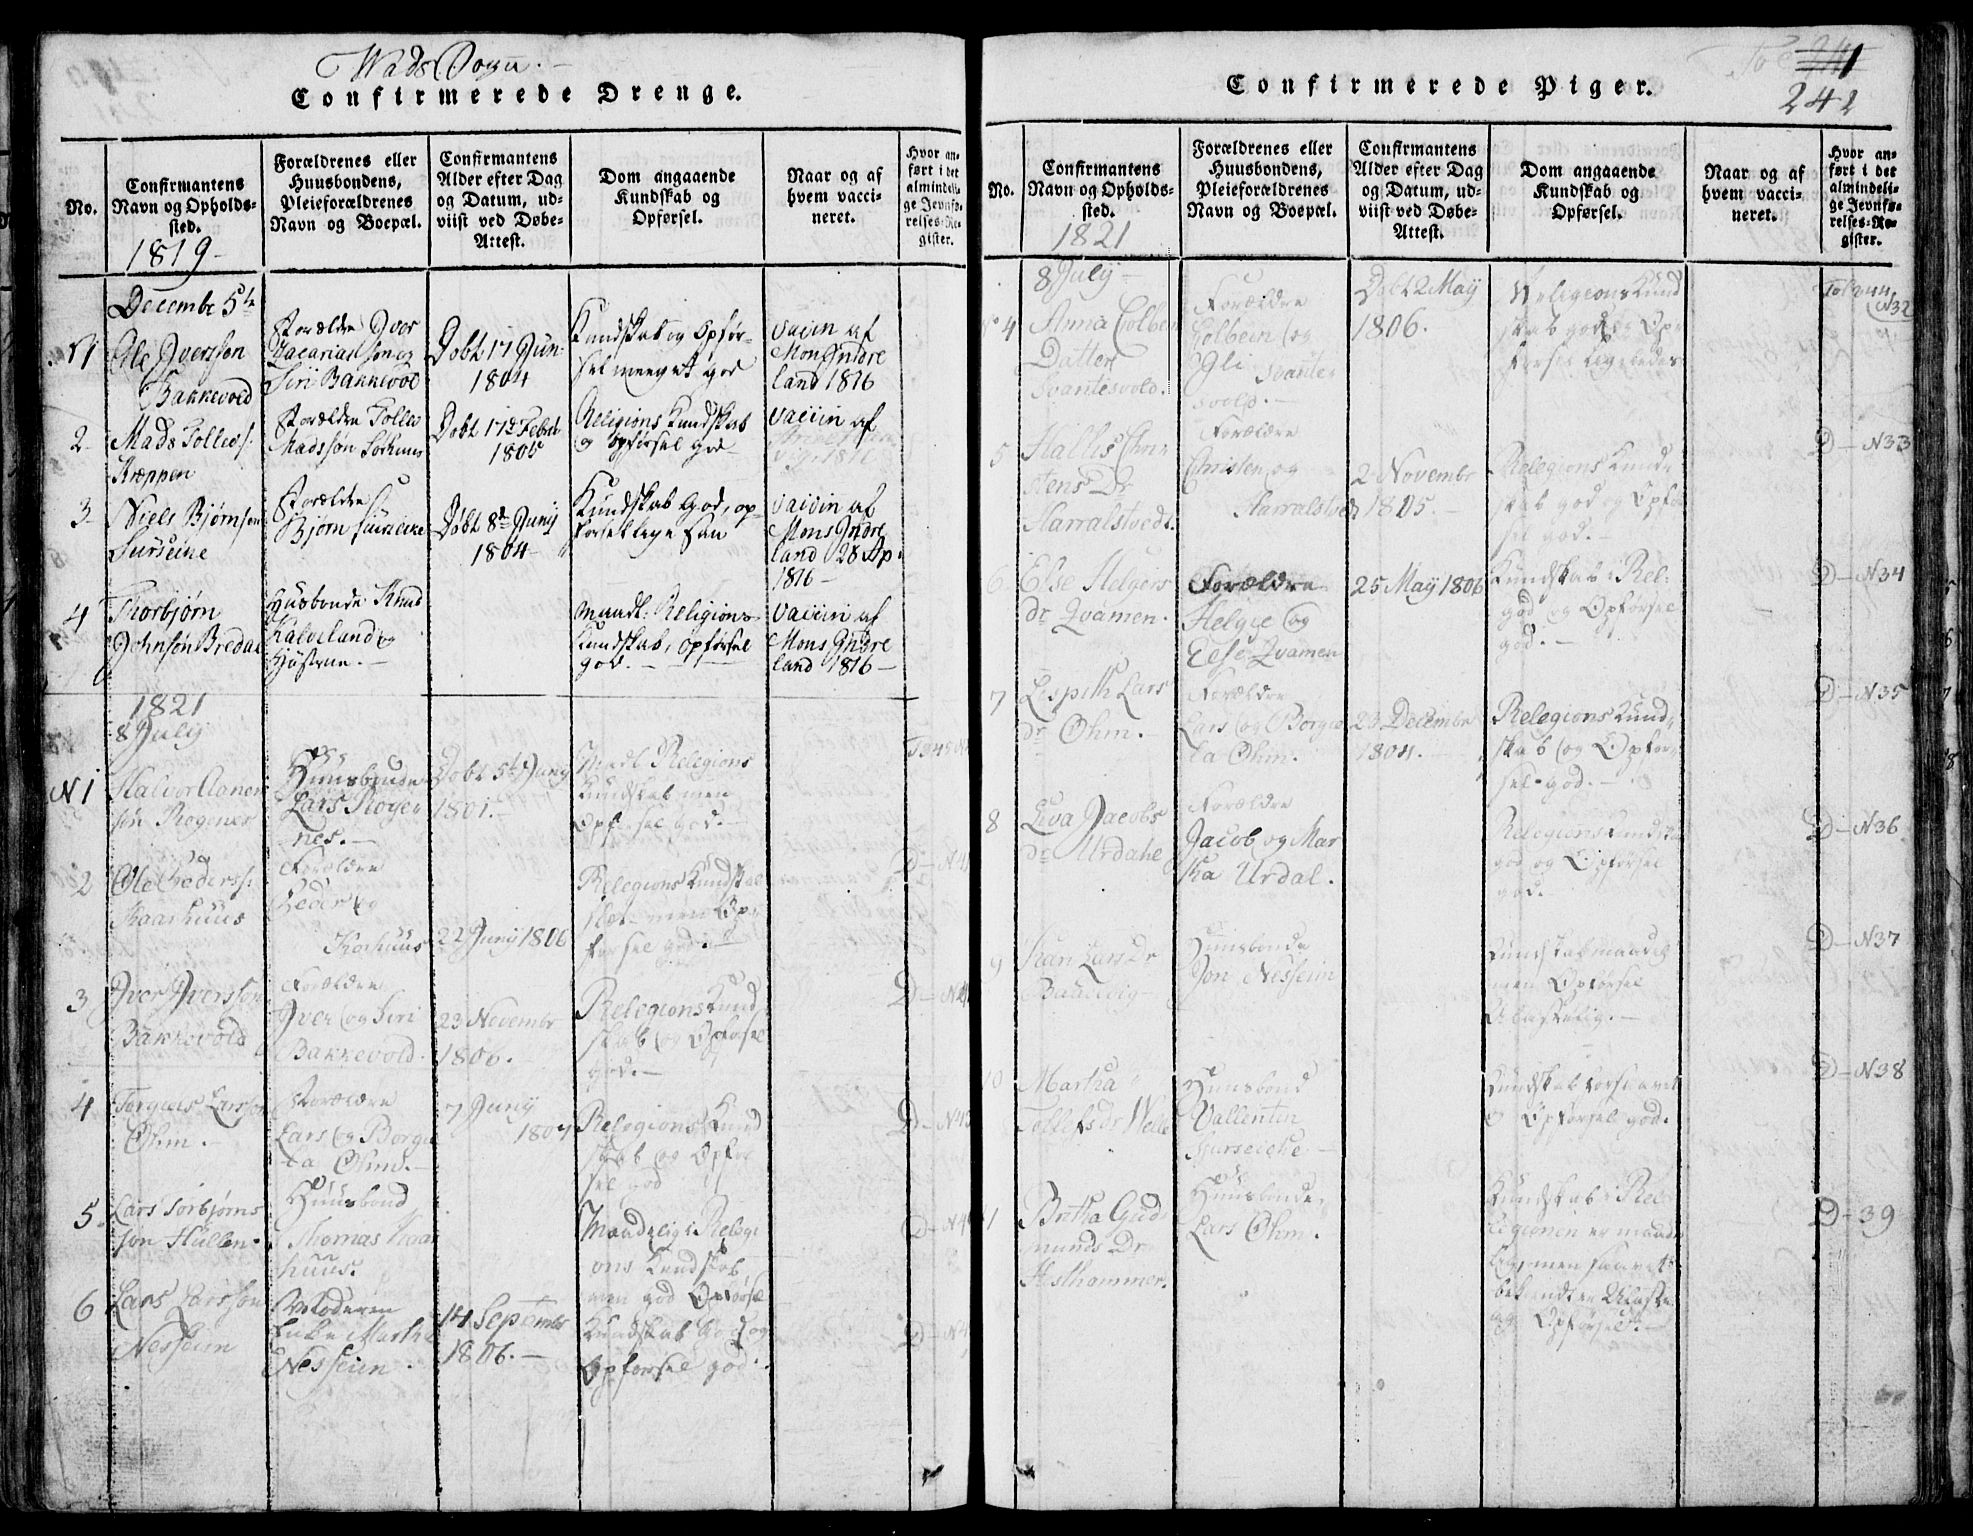 Wads Sogn. -
Confirmerede Drenge.
No.
Confirmantens
Navn og Opholds-
sted.
Forældrenes eller
Huusbondens,
Pleieforældrenes
Navn og Boepæl.
Confirmantens
Alder efter Dag
og Datum, ud-
viist ved Døbe-
Attest.
Dom angaaende
Kundskab og
Opførsel.
Naar og af
hvem vacci-
neret.
Hvor an-
ført i det
almindeli-
ge Jevnfø-
relses-Re-
gister.
1819-
Decembr 5te
N1
Ole Iversøn
Bakkevold
Forældre Iver
Zacariassøn og
Siri Bakkevold
Døbt 17 Jun:
1804
Kundskab og Opfør-
sel meeget god
vaccin af
Mons Indre
land 1816
2-
Mads Tollevs:
Kræppen
Forældre Tollev
Madssøn
Døbt 17de Febr
1805
Religions Kundskab
og opførsel god-
vaccin af
3-
Niels Bjørnsøn
Surseine
Forældre
Bjørn Surseine
Døbt 8de Junij
1804-
Kundskab God, op-
førsel ligesaa
vaccin af
Mons Indre
land 28 Ap:
1816-
4
Thorbjørn
Johnsøn Bredal
Husbonde Knud
Kalveland og
Hustrue. -
maadl: Religions
Kundskab, opførsel
god. -
vaccin af
Mons Indre
land 1816-
1821
8 Julij
N1
Halvor Aanen
søn Rogenes
Huusbonde
Lars Rogen
nes. -
Døbt 5te Junij
1801. -
Maadl Relegions
Kundskab men
Opførsel god. -
2
Ole Peders:
Kaarhuus
Forældre
Peder og
Korhuus
22 Junij 1806
Relegions Kundskab
slet men Op-
førsel god. -
D-N
3
Iver Iversøn
Bakkevold
Forældre
Iver og Siri
Bakkevold.
23 Novembr
1806.
Relegions Kund
skab og Opførsel
god. -
D-N
4
Torgiels Larssøn
Øhm. -
Forældre
Lars og Borge
ta Øhm. -
7 Junij
1807
Relegions Kund
skab og Opfør
sel god
D-N
5.
Lars Torbjørns
søn Hüllen.
Huusbond
Thomas Kaar
huus.
Maadelig i Relegi
ons Kundskab
men god Opførsel
D-N
6
Lars Larssøn
Nesseim
Moderen
Enke Martha
Nesseim.
14 Septembr
1806. -
Kundskab God og
Opførsel god.
D-N
Confirmerede Piger.
242
No.
Confirmantens
Navn og Opholds-
sted.
Forældrenes eller
Huusbondens,
Pleieforældrenes
Navn og Boepæl.
Confirmantens
Alder efter Dag
og Datum, ud-
viist ved Døbe-
Attest.
Dom angaaende
Kundskab og
Opførsel.
Naar og af
hvem vacci-
neret.
Hvor an-
ført i det
almindeli-
ge Jevnfø-
relses-Re-
gister.
1821
8 Julij-
No 4
Anna Colben
Datter
Svantesvold.
Forældre
Golbein og
Gli Svantes
vold. -
Døbt 2 May
1806.
Religions Kund
skab god og Op-
førsel ligeledes
Fol 244
N32
5
Hallis Chri-
stens Dr
Harralstvedt.
Forældre
Christen og
Harralstvedt
2 Novembr
1805. -
Relegions Kund-
skab god og Opfør
sel god. -
D-N33
6
Else Helgers
dr Qvamen.
Forældre
Helge og
Else Qvamen
25 May 1806
Kundskab i Rel:
god og Opførsel
god. -
D-N34
7
Lispith Lars
dr Øhm. -
Forældre
Lars og Borge
ta Øhm. -
23 Decembr
1804. -
Relegions Kund-
skab og Opfør-
sel god. -
D-N35
8
Eeva Jacobs
dr Urdahl
Forældre
Jacob og Mar
tha Urdal.
Relegions Kundskab
god og Opførsel
god.
D-N36
9
Kari Lars Dr
Huusbonde
Jon Nesseim
Kundskab maadelig
men Opførsel
Ulastelig. -
D-N37
10
Martha
Tollefs Dr Welle
Huusbond
Vallentin
Surseiche -
Kundskab forsvaret
og Opførsel god.
D-N38
11
Britha Gud
munds Dr
Hesthammer.
Huusbonde
Lars Øhm.
Kundskab i Re
legionen er maade
lig, men saavidt
bekendt er Ulaste
lig Opførsel. -
D-39